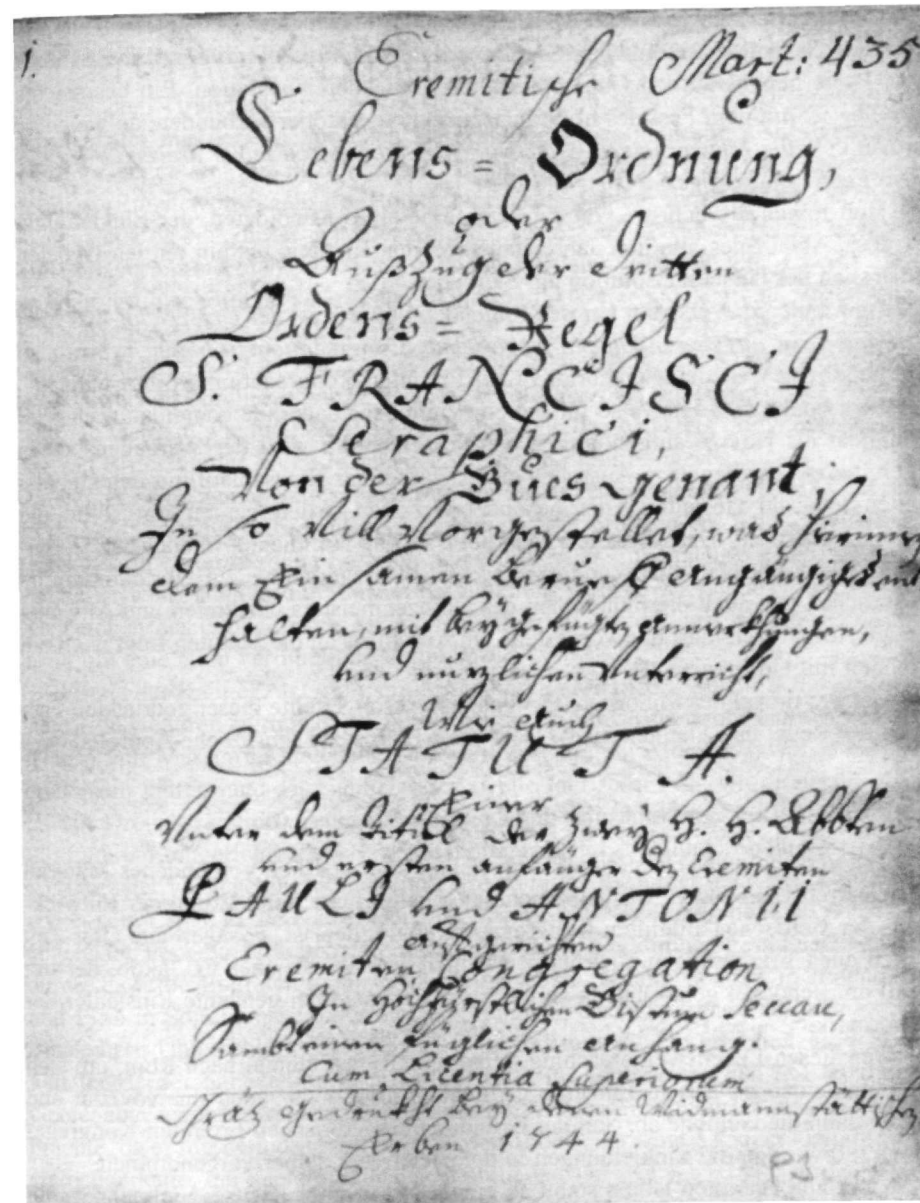 1.
Eremitische Mart: 435
Lebens = Ordnung,
oder
Außzug der dritten
Ordens = Regel
S. FRANCISCI
Seraphici,
Von der Bues genant,
In so Vill Vorgestellet, was hirinnen
dem Einsamen Berueff anhängiges ent
halten, mit beygefügten anmerkhungen,
und nuzlichen Unterricht,
Wie auch
STATUTA.
Einer
Unter dem Titull der Zwey H. H. Abbten
und ersten anfänger der Eremiten
PAULI und ANTONII
aufgerichten
Eremiten Congregation
In Hochfürstlichen Bistum Seccau,
Sambt einen füglichen anhang.
Cum Licentia Superiorum
Gräz gedrukht bey denen Widmannstättischen
Erben 1744.